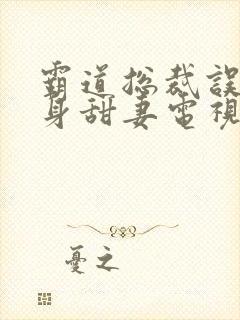 霸道总裁誤
身甜妻電視
憂之